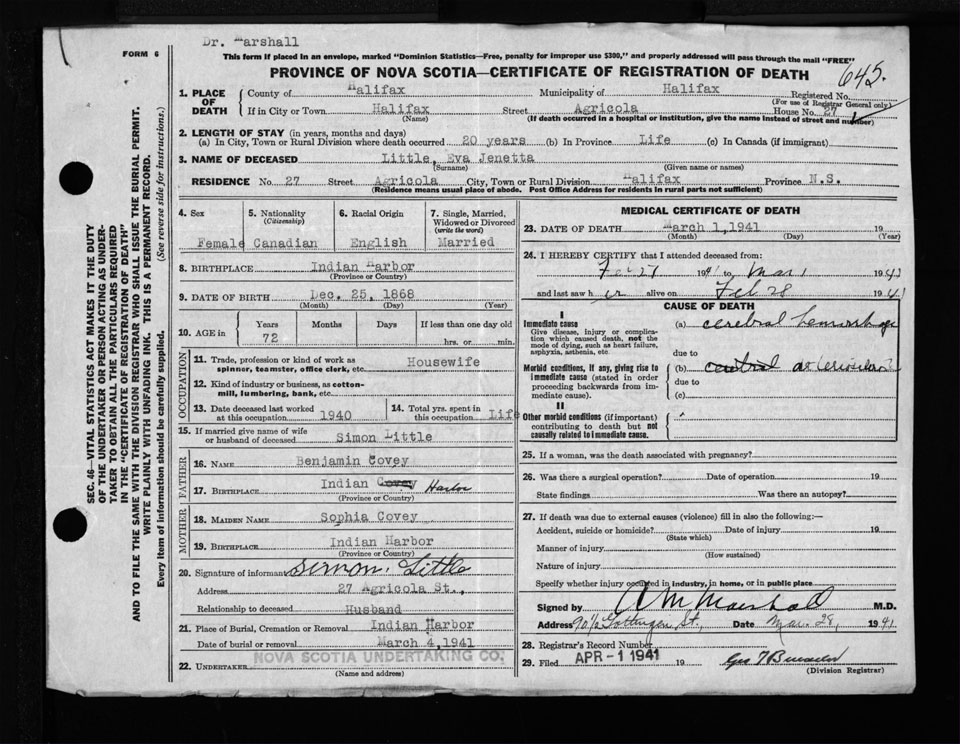 Dr. Marshall
FORM 6
This form if placed in an envelope, marked "Dominion Statistics—Free, penalty for improper use $300," and properly addressed will pass through the mail "FREE"
PROVINCE OF NOVA SCOTIA—CERTIFICATE OF REGISTRATION OF DEATH
645.
1. PLACE OF DEATH
County of Halifax Municipality of Halifax Registered No.
(For use of Registrar General only)
If in City or Town Halifax Street Agricola House No. 27
(Name) (If death occurred in a hospital or institution, give the name instead of street and number)
2. LENGTH OF STAY (in years, months and days)
(a) In City, Town or Rural Division where death occurred 20 years (b) In Province Life (c) In Canada (if immigrant)
3. NAME OF DECEASED Little, Eva Jenetta
(Surname) (Given name or names)
RESIDENCE No. 27 Street Agricola City, Town or Rural Division Halifax Province N.S.
(Residence means usual place of abode. Post Office Address for residents in rural parts not sufficient)
4. Sex Female
5. Nationality (Citizenship) Canadian
6. Racial Origin English
7. Single, Married, Widowed or Divorced (write the word) Married
8. BIRTHPLACE Indian Harbor
(Province or Country)
9. DATE OF BIRTH Dec. 25, 1868
(Month) (Day) (Year)
10. AGE in Years Months Days If less than one day old
72 hrs. or min.
OCCUPATION
11. Trade, profession or kind of work as Housewife
spinner, teamster, office clerk, etc.
12. Kind of industry or business, as cotton-
mill, lumbering, bank, etc.
13. Date deceased last worked at this occupation 1940
14. Total yrs. spent in this occupation Life
15. If married give name of wife or husband of deceased Simon Little
FATHER
16. NAME Benjamin Covey
17. BIRTHPLACE Indian Covey Harbor
(Province or Country)
MOTHER
18. MAIDEN NAME Sophia Covey
19. BIRTHPLACE Indian Harbor
(Province or Country)
20. Signature of informant Simon Little
Address 27 Agricola St.,
Relationship to deceased Husband
21. Place of Burial, Cremation or Removal Indian Harbor
Date of burial or removal March 4, 1941
22. UNDERTAKER NOVA SCOTIA UNDERTAKING CO.
(Name and address)
MEDICAL CERTIFICATE OF DEATH
23. DATE OF DEATH March 1, 1941 19
(Month) (Day) (Year)
24. I HEREBY CERTIFY that I attended deceased from:
Feb 27 1941 to Mar 1 1941
and last saw her alive on Feb 28 1941
CAUSE OF DEATH
I
Immediate cause (a) cerebral hemorrhage
Give disease, injury or complica-
tion which caused death, not the
mode of dying, such as heart failure,
asphyxia, asthenia, etc.
due to
Morbid conditions, if any, giving rise to (b)
immediate cause (stated in order
proceeding backwards from im-
mediate cause).
due to
(c)
II
Other morbid conditions (if important)
contributing to death but not
causally related to immediate cause.
25. If a woman, was the death associated with pregnancy?
26. Was there a surgical operation? Date of operation 19
State findings Was there an autopsy?
27. If death was due to external causes (violence) fill in also the following:—
Accident, suicide or homicide? Date of injury 19
(State which)
Manner of injury
(How sustained)
Nature of injury
Specify whether injury occurred in industry, in home, or in public place
Signed by A M Marshall M.D.
Address 90½ Gottingen St., Date Mar. 28, 1941
28. Registrar's Record Number
29. Filed APR - 1 1941 19
(Division Registrar)
SEC. 46—VITAL STATISTICS ACT MAKES IT THE DUTY
OF THE UNDERTAKER OR PERSON ACTING AS UNDER-
TAKER TO OBTAIN ALL THE PARTICULARS REQUIRED
IN THE "CERTIFICATE OF REGISTRATION OF DEATH"
AND TO FILE THE SAME WITH THE DIVISION REGISTRAR WHO SHALL ISSUE THE BURIAL PERMIT.
WRITE PLAINLY WITH UNFADING INK. THIS IS A PERMANENT RECORD.
Every item of information should be carefully supplied. (See reverse side for instructions.)